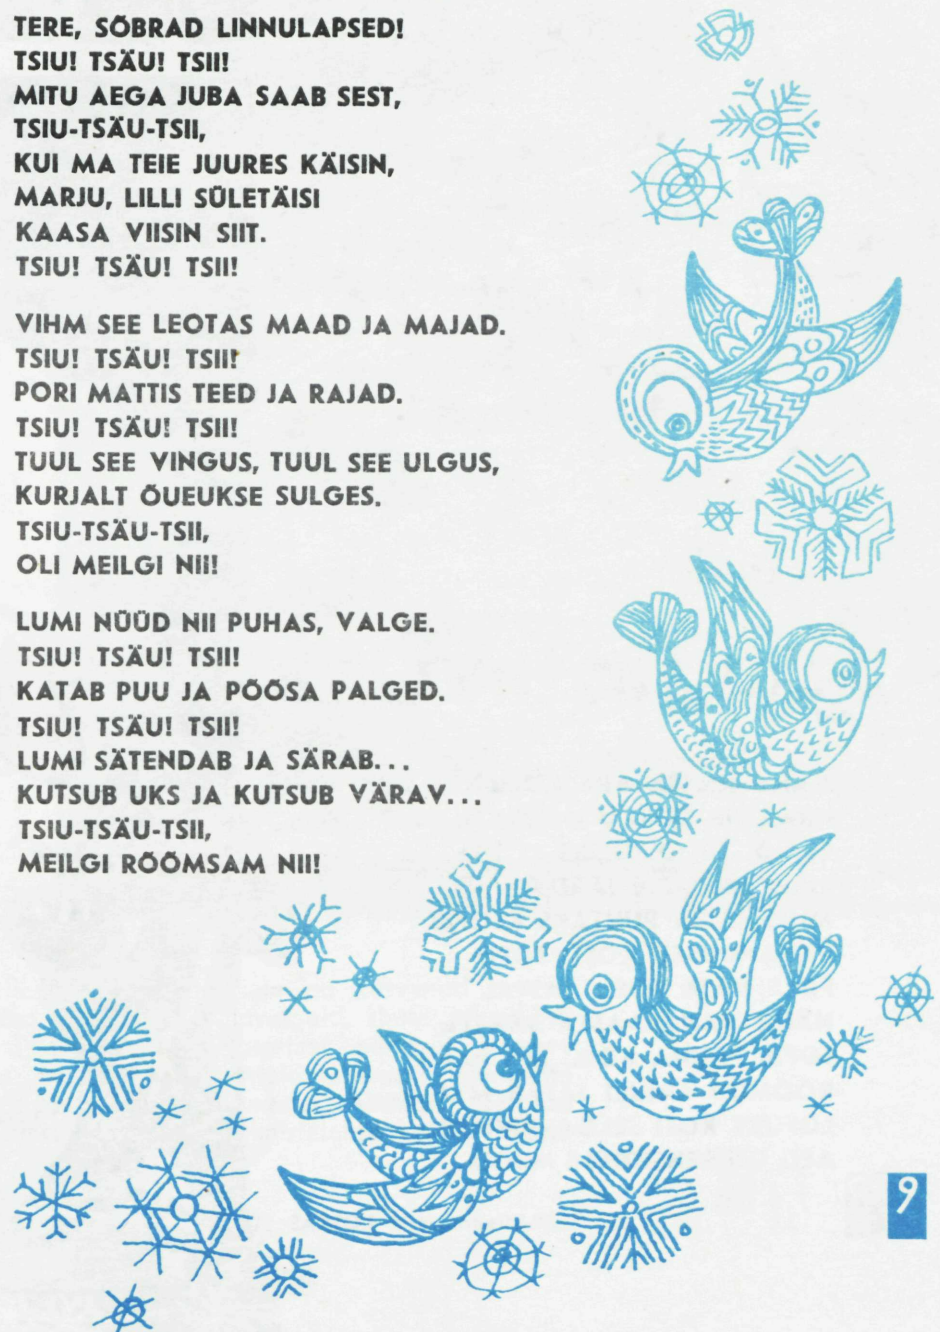 TERE, SÕBRAD LINNULAPSED!
TSIU! TSÄU! TSII!
MITU AEGA JUBA SAAB SEST,
TSIU-TSÄU-TSII,
KUI MA TEIE JUURES KÄISIN,
MARJU, LILLI SÜLETÄISI
KAASA VIISIN SIIT.
TSIU! TSÄU! TSII!
VIHM SEE LEOTAS MAAD JA MAJAD.
TSIU! TSÄU! TSII!
PORI MATTIS TEED JA RAJAD.
TSIU! TSÄU! TSII!
TUUL SEE VINGUS, TUUL SEE ULGUS,
KURJALT ÕUEUKSE SULGES.
TSIU-TSÄU-TSII,
OLI MEILGI NII!
LUMI NÜÜD NII PUHAS, VALGE.
TSIU! TSÄU! TSII!
KATAB PUU JA PÕÕSA PALGED.
TSIU! TSÄU! TSII!
LUMI SÄTENDAB JA SÄRAB...
KUTSUB UKS JA KUTSUB VÄRAV...
TSIU-TSÄU-TSII,
MEILGI RÕÕMSAM NII!
9